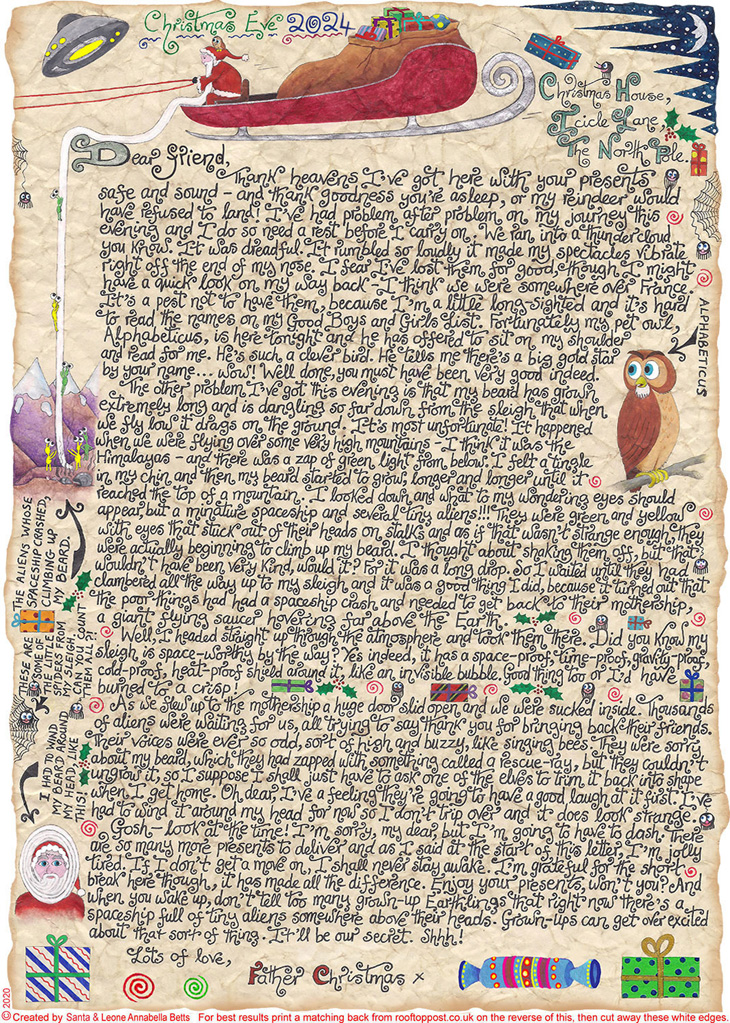 Christmas Eve 2024
Christmas House,
Icicle Lane,
The North Pole.
Dear Friend,
Thank heavens I've got here with your presents
safe and sound - and thank goodness you're asleep, or my reindeer would
have refused to land! I've had problem after problem on my journey this
evening and I do so need a rest before I carry on. We ran into a thundercloud
you know. It was dreadful. It rumbled so loudly it made my spectacles vibrate
right off the end of my nose. I fear I've lost them for good, though I might
have a quick look on my way back - I think we were somewhere over France.
It's a pest not to have them, because I'm a little long-sighted and it's hard
to read the names on my Good Boys and Girls List. Fortunately my pet owl,
Alphabeticus, is here tonight and he has offered to sit on my shoulder
and read for me. He's such a clever bird. He tells me there's a big gold star
by your name... wow! Well done, you must have been very good indeed.
The other problem I've got this evening is that my beard has grown
extremely long and is dangling so far down from the sleigh that when
we fly low it drags on the ground. It's most unfortunate! It happened
when we were flying over some very high mountains - I think it was the
Himalayas - and there was a zap of green light from below. I felt a tingle
in my chin and then my beard started to grow, longer and longer until it
reached the top of a mountain. I looked down and what to my wondering eyes should
appear but a minature spaceship and several tiny aliens!!! They were green and yellow
with eyes that stuck out of their heads on stalks and as if that wasn't strange enough, they
were actually beginning to climb up my beard. I thought about shaking them off, but that
wouldn't have been very kind, would it? For it was a long drop. So I waited until they had
clambered all the way up to my sleigh and it was a good thing I did, because it turned out that
the poor things had had a spaceship crash and needed to get back to their mothership,
a giant flying saucer hovering far above the Earth.
Well, I headed straight up through the atmosphere and took them there. Did you know my
sleigh is space-worthy by the way? Yes indeed, it has a space-proof, time-proof, gravity-proof,
cold-proof, heat-proof shield around it, like an invisible bubble. Good thing too or I'd have
burned to a crisp!
As we flew up to the mothership a huge door slid open and we were sucked inside. Thousands
of aliens were waiting for us, all trying to say thank you for bringing back their friends.
Their voices were ever so odd, sort of high and buzzy, like singing bees. They were sorry
about my beard, which they had zapped with something called a rescue-ray, but they couldn't
ungrow it, so I suppose I shall just have to ask one of the elves to trim it back into shape
when I get home. Oh dear, I've a feeling they're going to have a good laugh at it first. I've
had to wind it around my head for now so I don't trip over and it does look strange.
Gosh - look at the time! I'm sorry, my dear, but I'm going to have to dash. There
are so many more presents to deliver and as I said at the start of this letter, I'm jolly
tired. If I don't get a move on, I shall never stay awake. I'm grateful for the short
break here though, it has made all the difference. Enjoy your presents, won't you? And
when you wake up, don't tell too many grown-up Earthlings that right now there's a
spaceship full of tiny aliens somewhere above their heads. Grown-ups can get over excited
about that sort of thing. It'll be our secret. Shhh!
Lots of love,
Father Christmas x
ALPHABETICUS
THE ALIENS WHOSE
SPACESHIP CRASHED,
CLIMBING UP
MY BEARD.
THESE ARE
SOME OF
THE LITTLE
SPIDERS FROM
MY SLEIGH.
CAN YOU COUNT
THEM ALL?!
I HAD TO WIND
MY BEARD AROUND
MY HEAD, LIKE
THIS!
2020
© Created by Santa & Leone Annabella Betts For best results print a matching back from rooftoppost.co.uk on the reverse of this, then cut away these white edges.